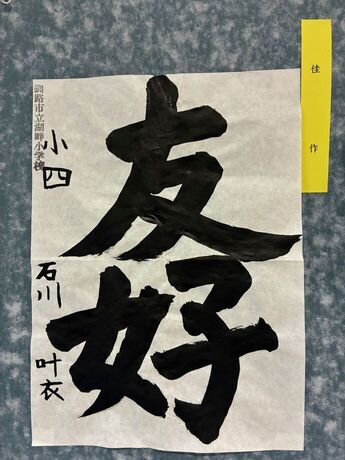 佳作
友好
釧路市立湖畔小学校
小四
石川 叶衣